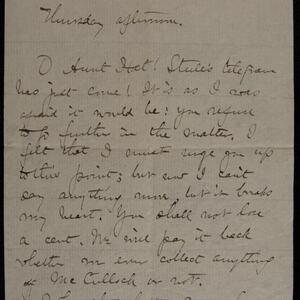 Thursday afternoon.
O Aunt Hat! Stule's telegram
has just come! It is as I was
afraid it would be: you refuse
to go further in the matter. I
felt that I must urge you up
to this point; but now I can't
say anything more, but it breaks
my heart. You shall not lose
a cent. We will pay it back
whether we ever collect anything
of McCulloch or not.